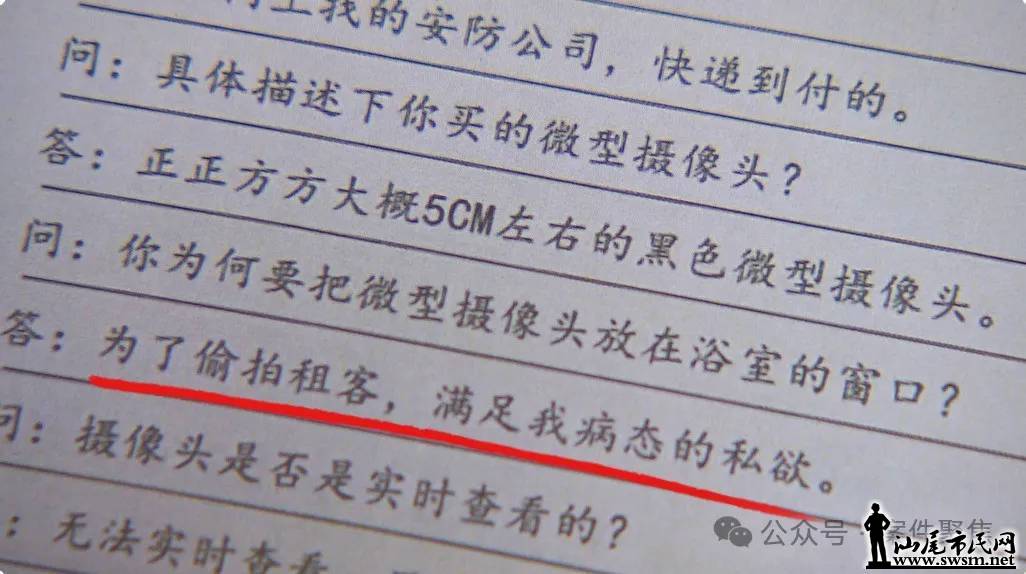 上找的安防公司，快递到付的。
问：具体描述下你买的微型摄像头？
答：正正方方大概5CM左右的黑色微型摄像头。
问：你为何要把微型摄像头放在浴室的窗口？
答：为了偷拍租客，满足我病态的私欲。
问：摄像头是否是实时查看的？
：无法实时查看
公众号 案件聚焦
汕尾市民网
www.swsm.net